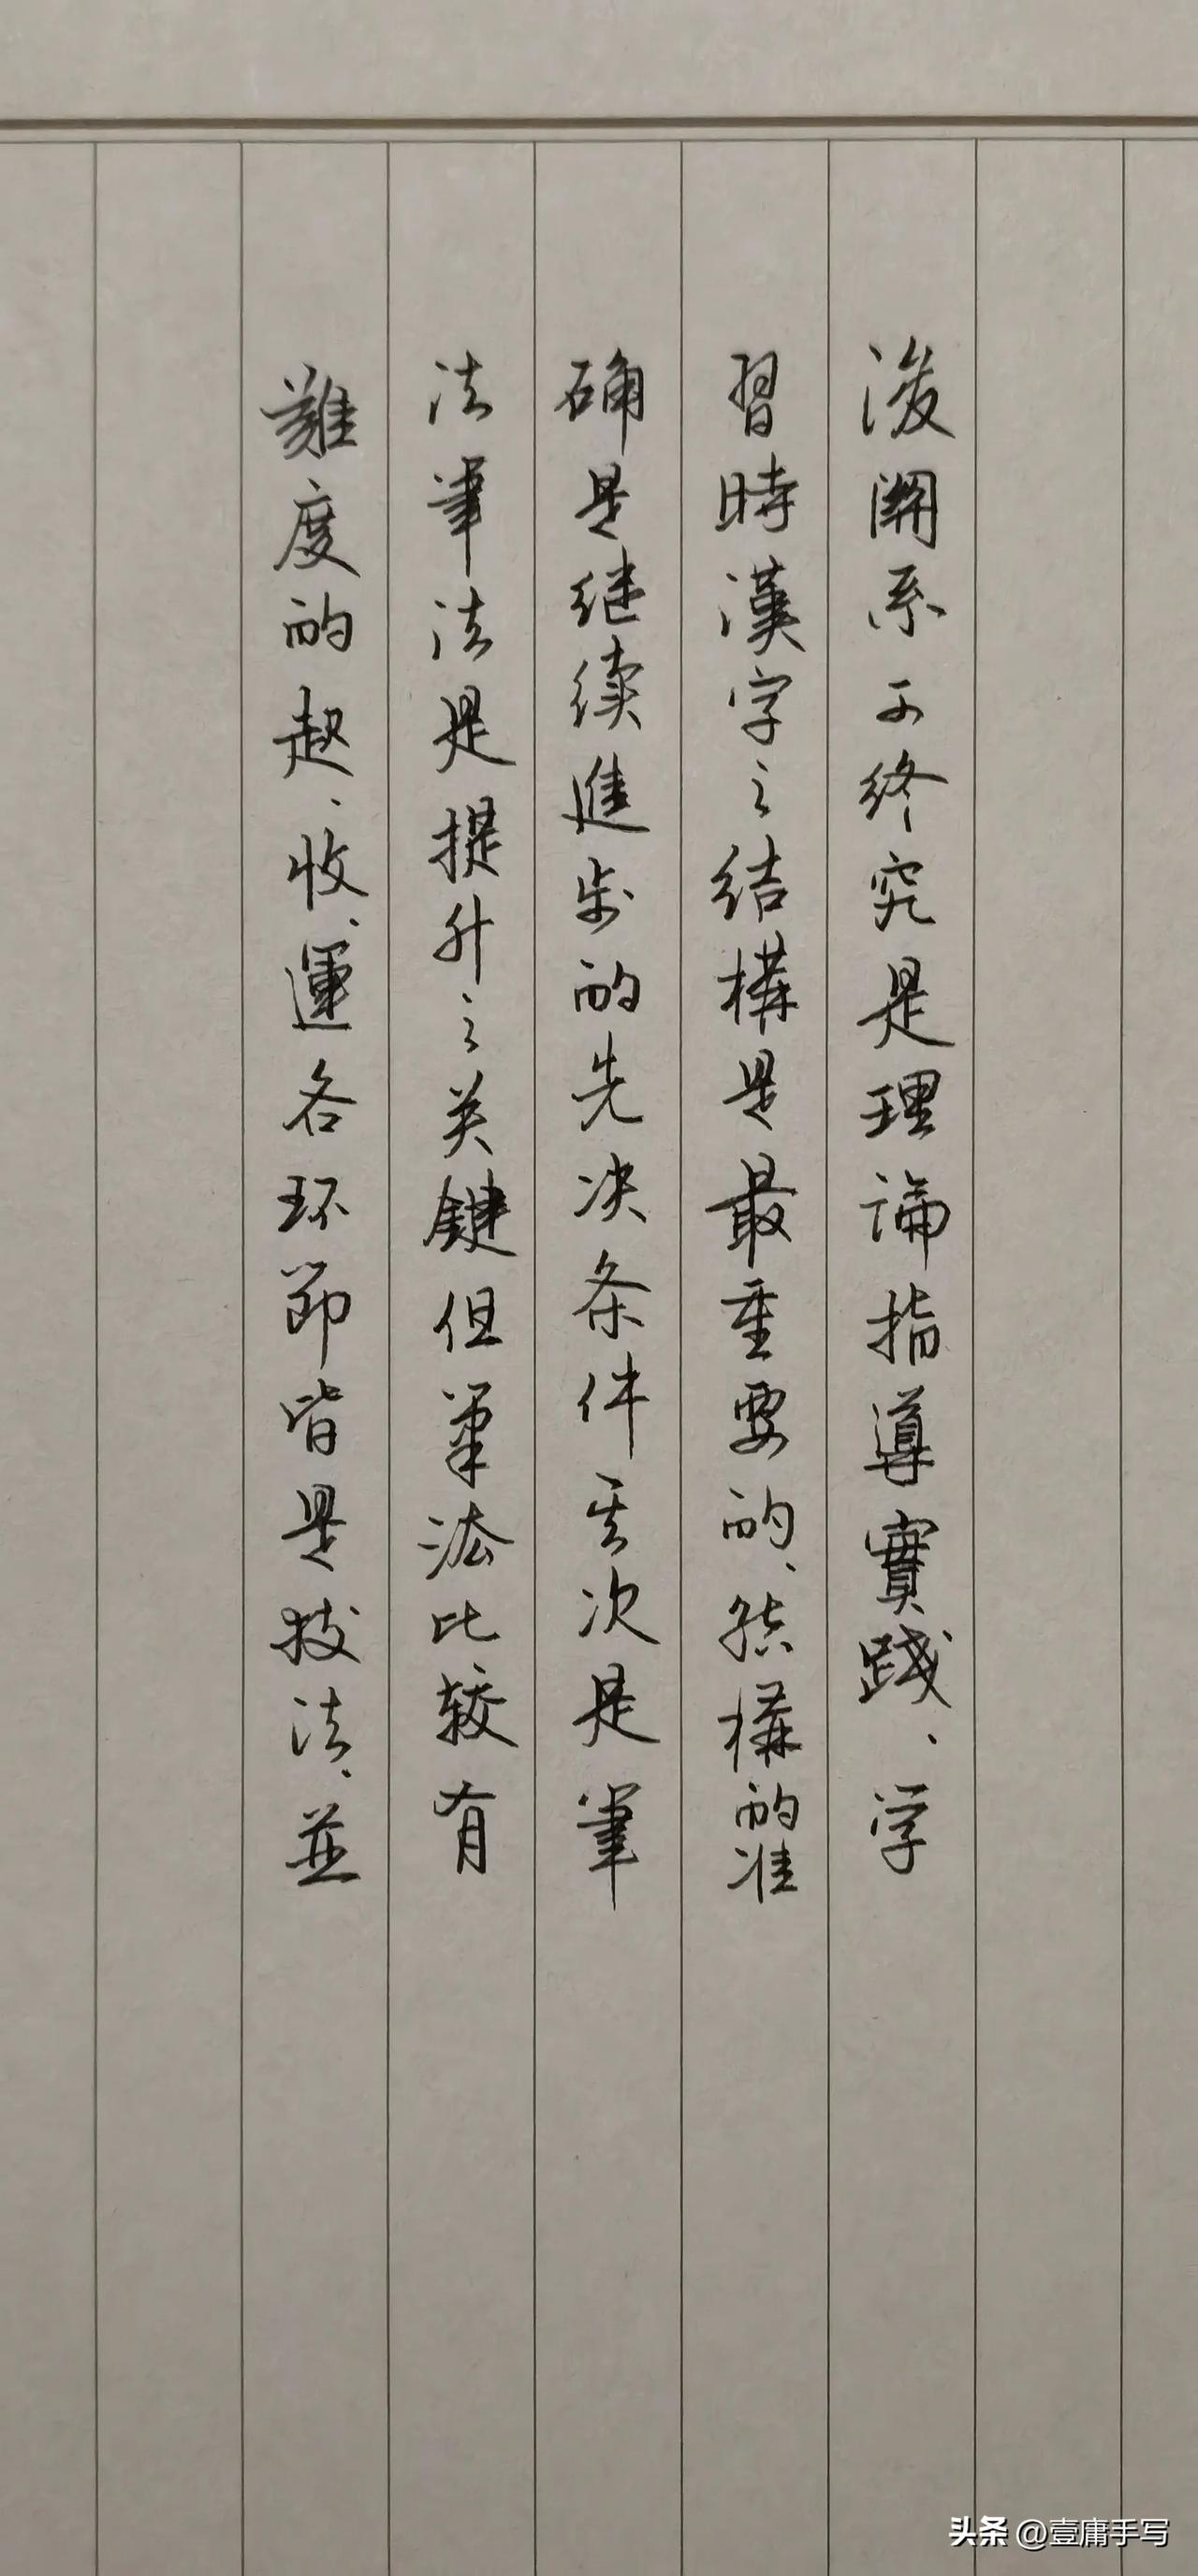 後關系不終究是理論指導實踐、学
習時漢字之结構是最重要的、结構的准
确是继续進步的先决条件其次是筆
法筆法是提升之关鍵但筆法比较有
難度的起、收、運各环節皆是技法、並
头条 @壹庸手写